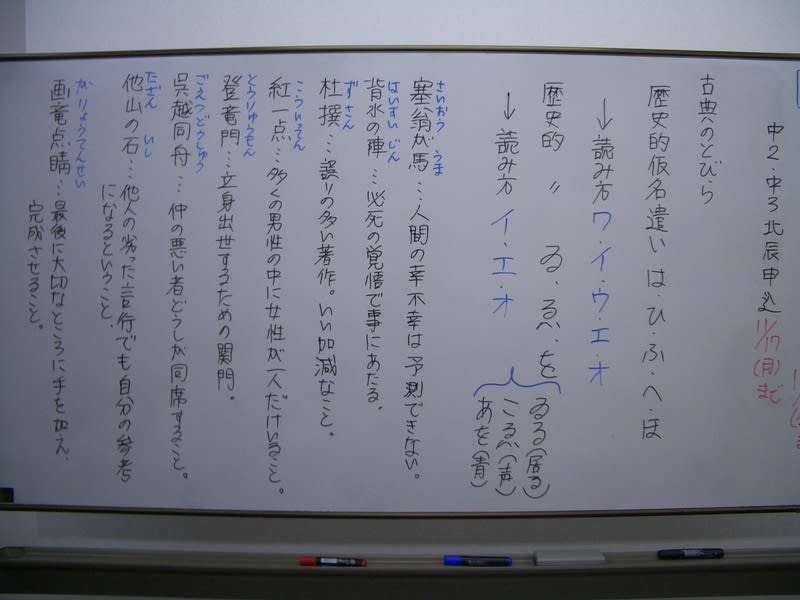 中2・中3北辰申込
11/17(月)まで
古典のとびら
歴史的仮名遣い は・ひ・ふ・へ・ほ
↓読み方 ワ・イ・ウ・エ・オ
歴史的 〃 ゐ・ゑ・を
↓読み方 イ・エ・オ
ゐる(居る)
こゑ(声)
あを(青)
さいおう うま
塞翁が馬…人間の幸不幸は予測できない。
はいすい じん
背水の陣…必死の覚悟で事にあたる。
ず さん
杜撰…誤りの多い著作。いい加減なこと。
こういってん
紅一点…多くの男性の中に女性が一人だけいること。
とうりゅうもん
登竜門…立身出世するための関門。
ごえつどうしゅう
呉越同舟…仲の悪い者どうしが同席すること。
たざん いし
他山の石…他人の劣った言行でも自分の参考
になるということ。
がりょうてんせい
画竜点睛…最後に大切なところに手を加え、
完成させること。